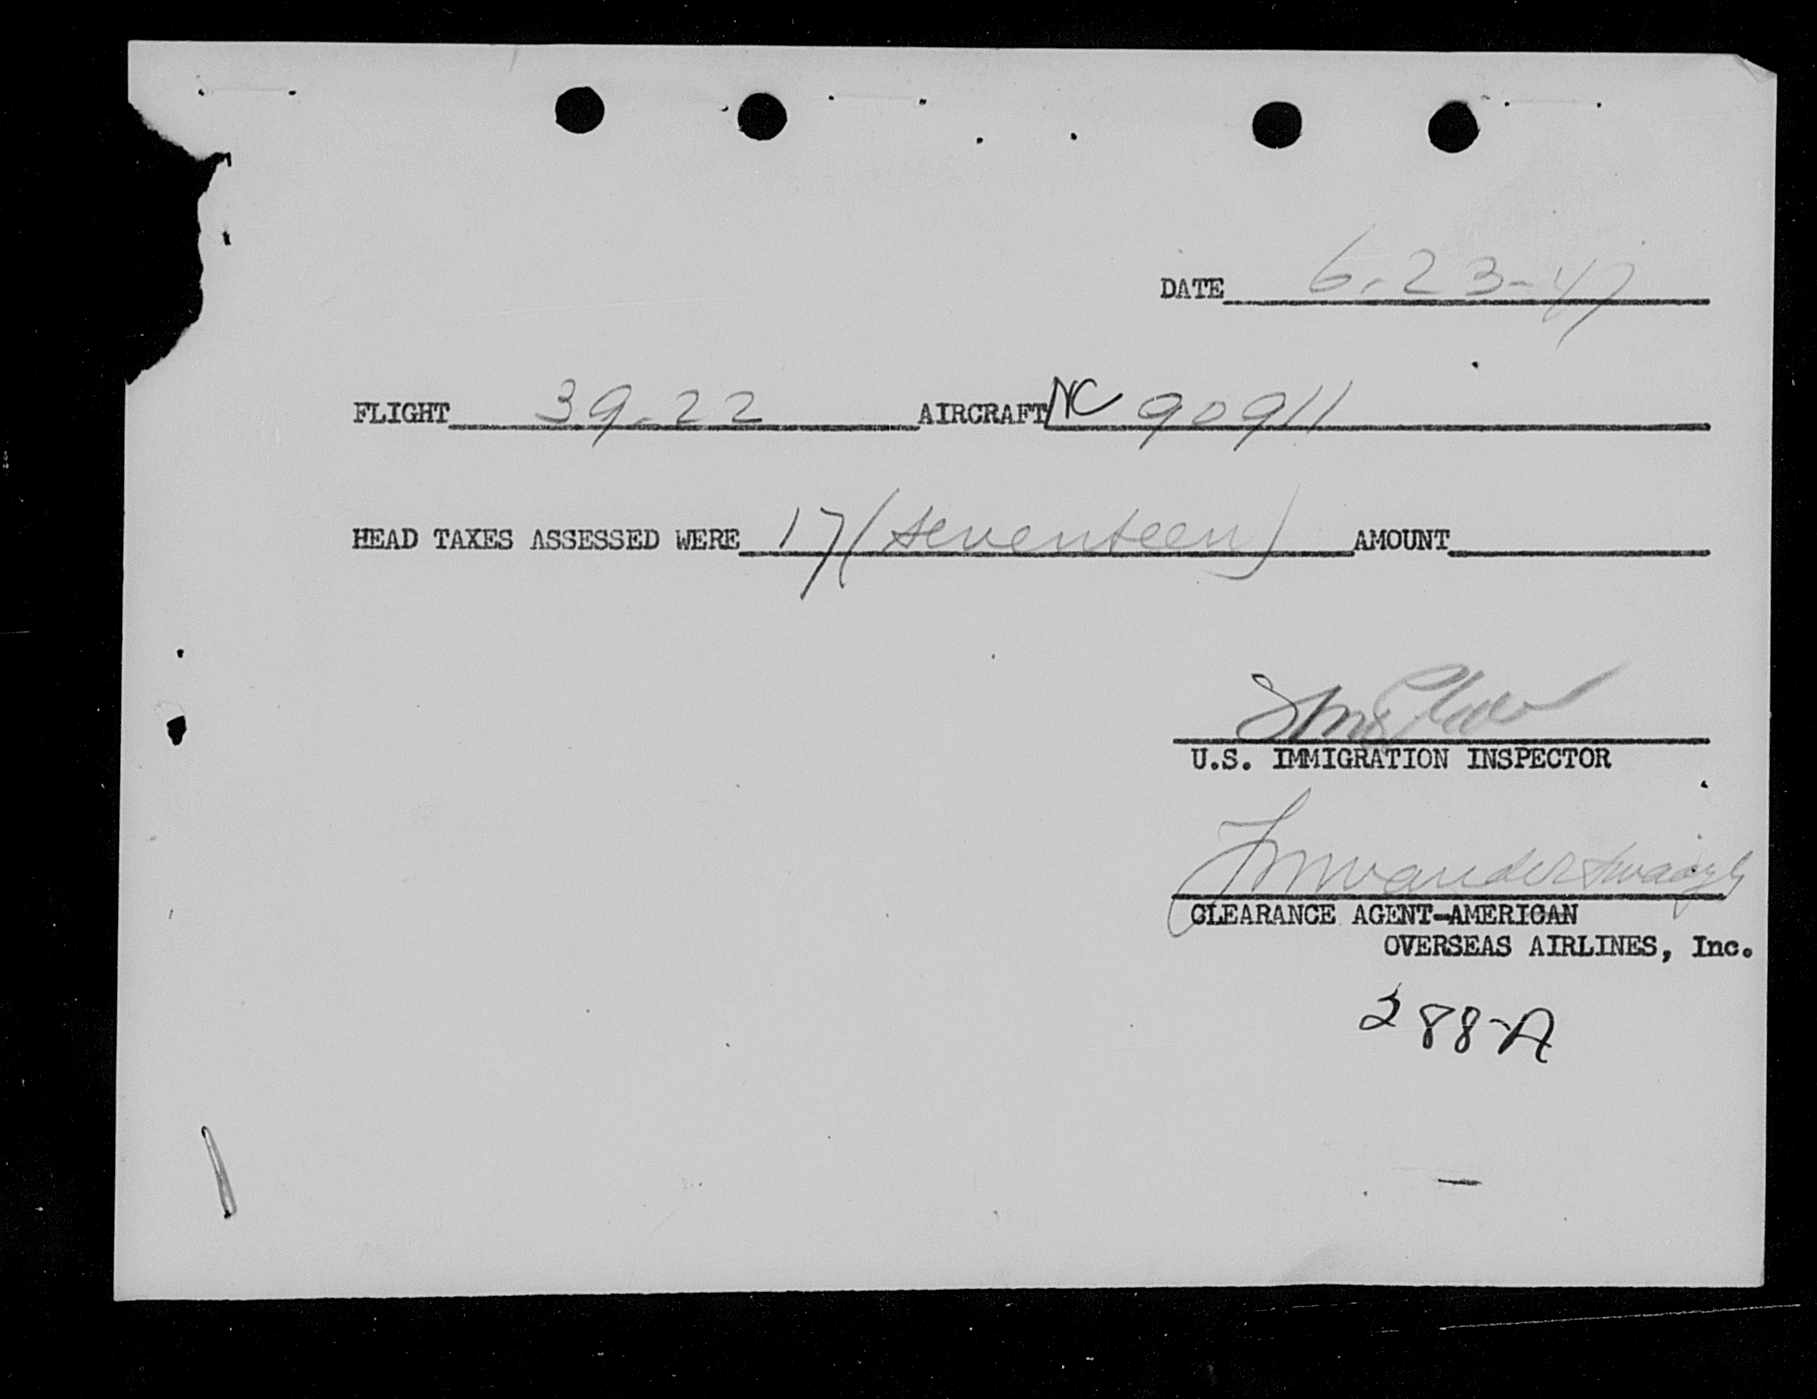 DATE 6-23-47
FLIGHT 39-22 AIRCRAFT NC 90911
HEAD TAXES ASSESSED WERE 17 (seventeen) AMOUNT
U.S. IMMIGRATION INSPECTOR
CLEARANCE AGENT-AMERICAN
OVERSEAS AIRLINES, Inc.
288-A